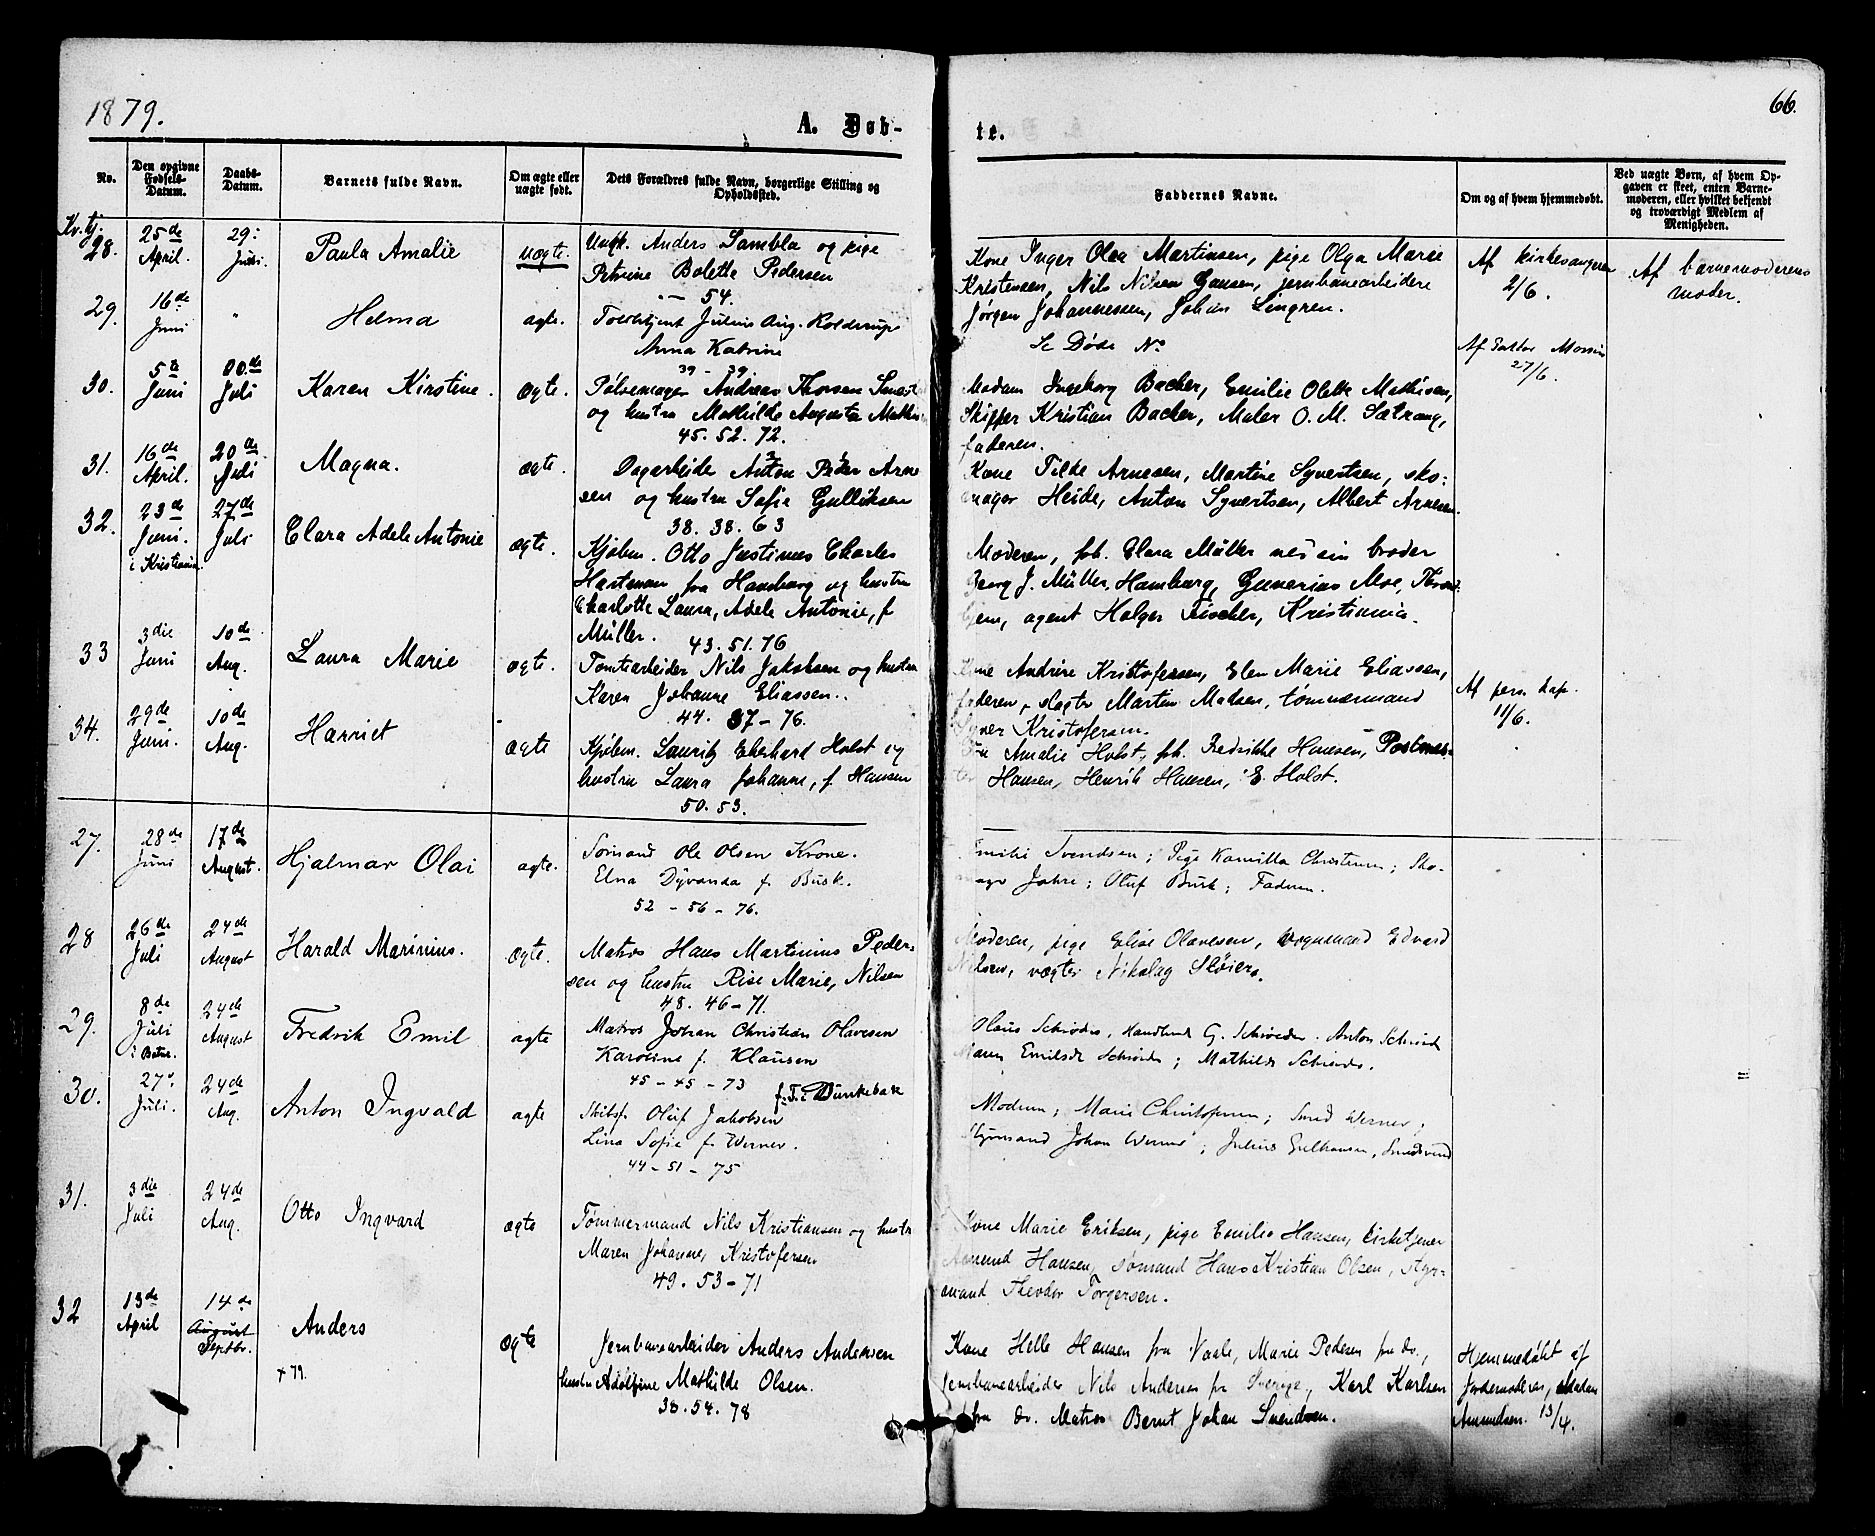 1879.
66.
A. Døb-
te.
No.
Den opgivne Fødsels-Datum.
Daabs-Datum.
Barnets fulde Navn.
Om ægte eller uægte født.
Dets Forældres fulde Navn, borgerlige Stilling og Opholdssted.
Faddernes Navne.
Om og af hvem hjemmedøbt.
Ved uægte Børn, af hvem Opgaven er skeet, enten Barnemoderen, eller hvilket bekjendt og troværdigt Medlem af Menigheden.
Kv.kj.
28. 25de April. 29: Juni. Paula Amalie uægte. Ungk. Anders Lambla og pige
Petrine Bolette Pedersen
54.
Kone Inger Olea Martinsen, pige Olga Marie
Kristensen, Nils Nilsen Gausen, jernbanearbeidere
Jørgen Johannessen, Johan Lingren.
Af kirkesangeren 2/6.
Af barnemoderens moder.
29. 16de Juni " Helma ægte. Julius Aug. Kolderup
Anna Katrine
39 - 39.
Se Døde No
27/6.
30. 5te Juni 20de Juli Karen Kirstine. ægte. Pølsemager Andreas Thorsen
og hustru Mathilde Augusta
45. 52. 72.
Madam Ingeborg Backer, Emilie Olette Mathisen,
Skipper Kristian Backer, Maler O. M. Sætrang,
faderen.
31. 16de April. 20de Juli Magna. ægte. Dagarbeide Anton Peder Arne
sen og hustru Sofie Gulliksen
38. 38. 63
Kone Tilde Arnesen, Martine Syvertsen, sko-
mager Heide, Anton Syvertsen, Albert Arnesen.
32. 23de Juni. i Kristiania. 27de Juli Clara Adele Antonie ægte. Kjøbm. Otto Justinus Charles
Hartmann fra Hamburg og hustru
Charlotte Laura, Adele Antonie, f
Müller. 43. 51. 76
Moderen, frk. Clara Müller med sin broder
Georg J. Müller, Hamburg, Gunerius Moe, Thrond
hjem, agent Holger Fischer, Kristiania.
33 3die Juni 10de Aug. Laura Marie ægte. Tomtearbeider Nils Jakobsen og hustru
Karen Johanne Eliassen.
44. 37 - 76.
Kone Andrine Kristofersen, Elen Marie Eliassen,
faderen, slagter Martin Madsen, tømmermand
Kristofersen.
Af pers. kap. 11/6.
34. 29de Juni. 10de Aug. Harriet - ægte Kjøbm. Lauritz Ekehard Holst og
hustru Laura Johanne, f. Hansen
50. 53.
Fru Amalie Holst, frk. Fredrikke Hansen, Postmes-
ter Hansen, Henrik Hansen, E. Holst.
27. 28de Juni 17de August. Hjalmar Olai ægte. Sømand Ole Olsen Krone.
Elna Dyvanda f. Busk.
52 - 56 - 76.
Emilie Svendsen; Pige Kamilla Christensen; Sko-
mager Jahre; Oluf Busk; Faderen.
28 26de Juli 24de August Harald Marinius. ægte. Matros Hans Martinius Peder-
sen og hustru Rise Marie, Nilsen
48. 46 - 71.
Moderen, pige Elise Olavesen, vognmand Edvard
Nilsen, vægter Nikolag Sløier.
29. 8de Juli 24de August Fredrik Emil ægte Matros Johan Christian Olavesen
Karoline f. Klausen
45 - 45 - 73
Olaus Schrøder, Handlende G. Schrøder. Anton Schrøder
Maren Emilsdt Schrøder; Mathilde Schrøder.
30. 27. Juli. 24de Aug. Anton Ingvald ægte Oluf Jakobsen
Lina Sofie f. Werner.
44 - 51 - 75
Moderen; Marie Christofersen; Smed Werner;
Styrmand Johan Werner; Julius Gulhausen,
31. 3die Juli 24de Aug. Otto Ingvard ægte Tømmermand Nils Kristiansen og hustru
Maren Johanne, Kristofersen
49. 53 - 71
Kone Marie Eriksen, pige Emilie Hansen, kirketjener
Hansen, sømand Hans Kristian Olsen, styr-
mand Theodor Torgersen.
32 13de April 14de August Septbr. Anders ægte Jernbanearbeider Anders Andersen
hustru Adolfine Mathilde Olsen.
38. 54. 78
+ 79.
Kone Helle Hansen fra Vaale, Marie Pedersen fra do.,
jernbanearbeider Nils Andersen fra Sverige, Karl Karlsen
fra do. Matros Bernt Johan Svendsen.
Hjemmedøbt af
Jordemoderen, Madam
Amundsen. 13/4.